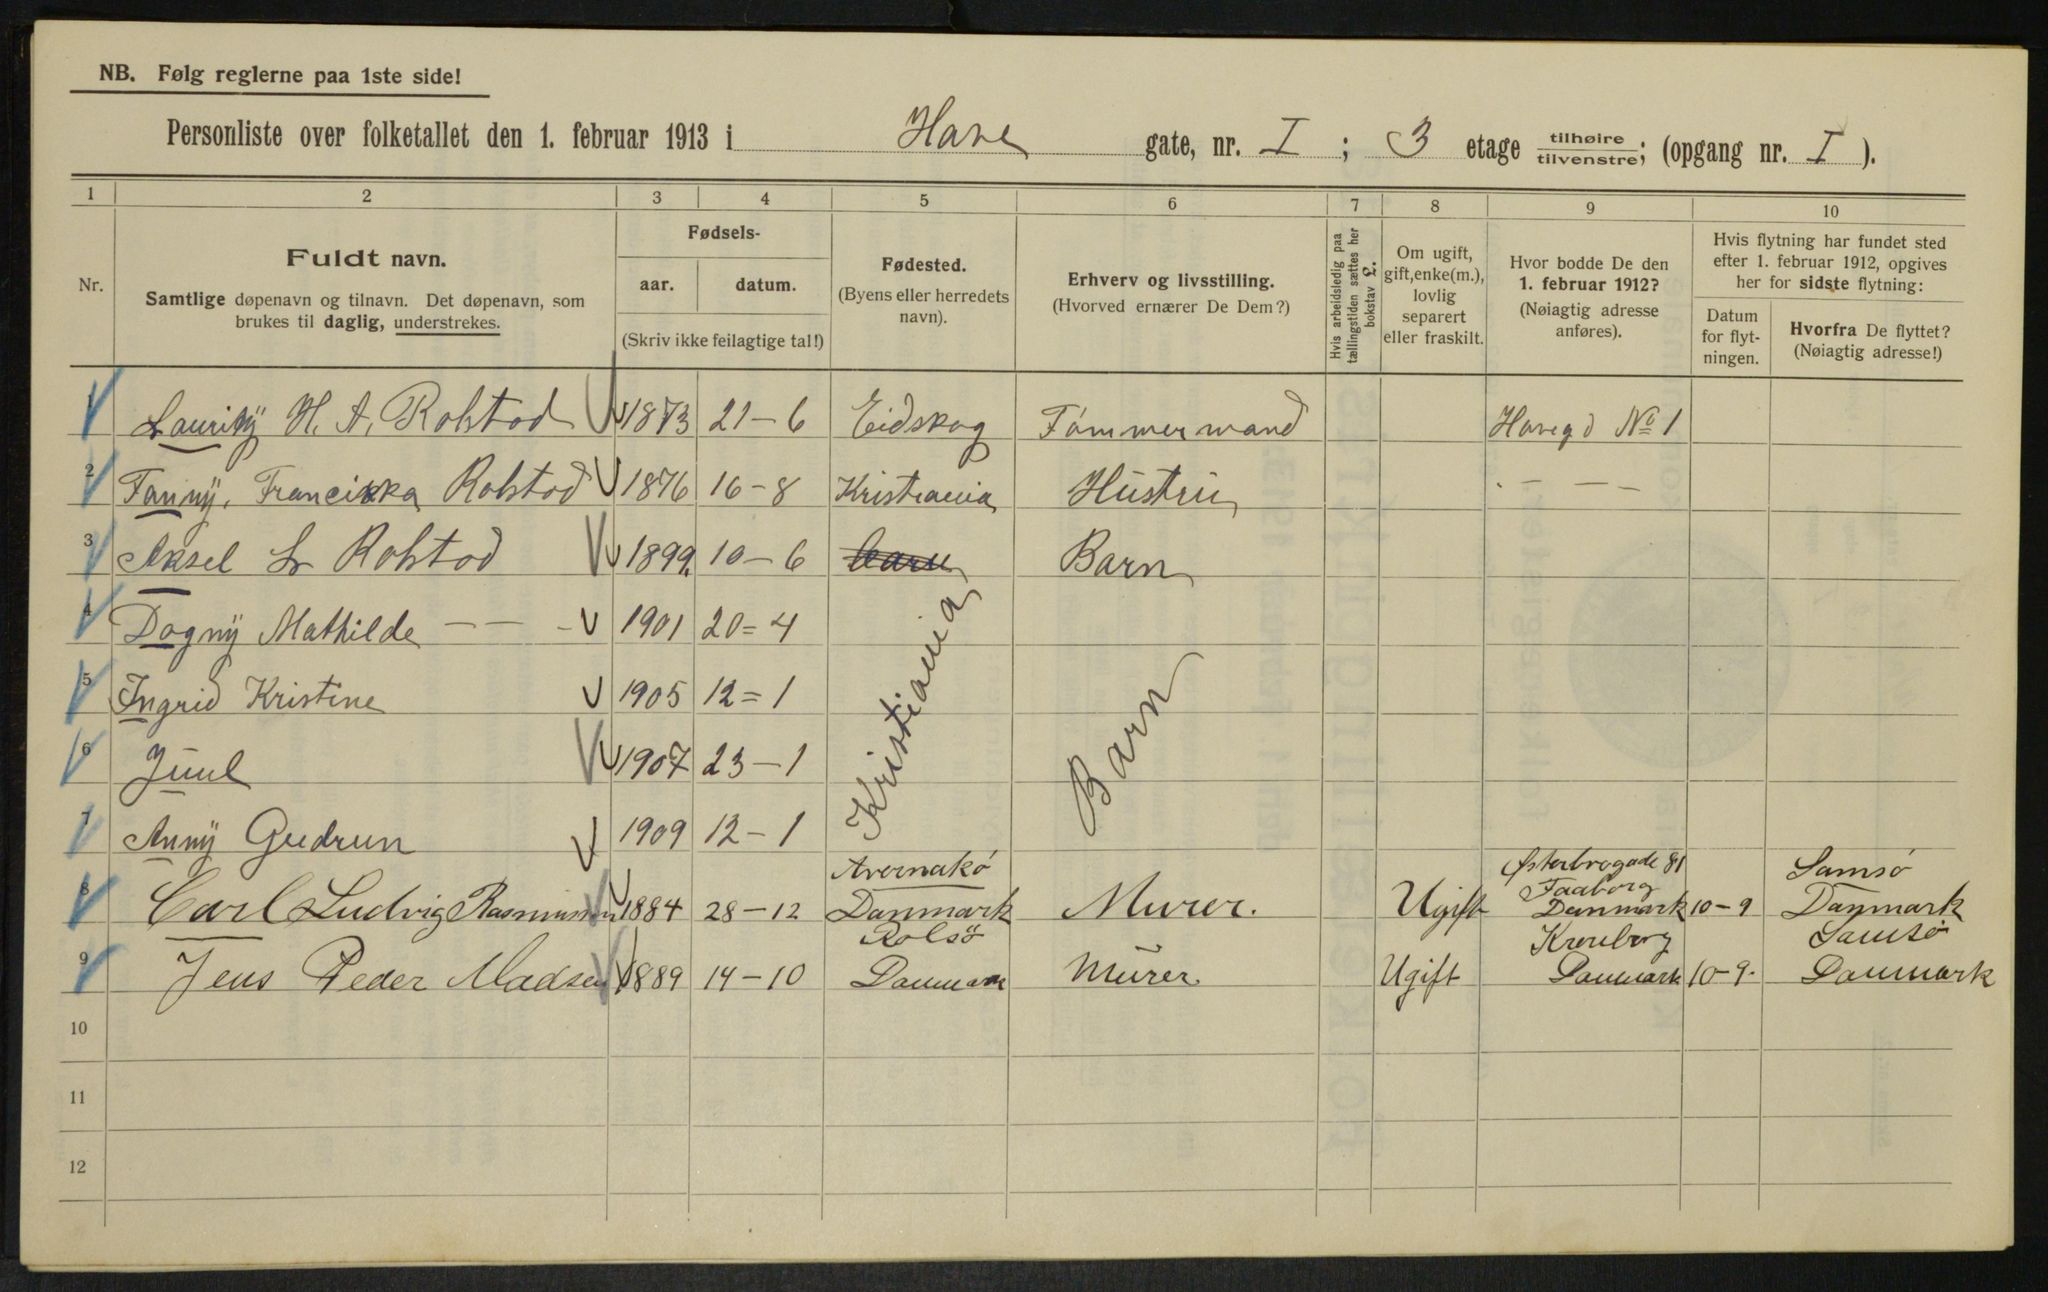 NB. Følg reglerne paa 1ste side!
Personliste over folketallet den 1. februar 1913 i Have gate, nr. I ; 3 etage tilhøire tilvenstre; (opgang nr. I ).
1 2 3 4 5 6 7 8 9 10
Nr.
Fuldt navn.
Samtlige døpenavn og tilnavn. Det døpenavn, som
brukes til daglig, understrekes.
Fødsels-
aar. datum.
(Skriv ikke feilagtige tal!)
Fødested.
(Byens eller herredets
navn).
Erhverv og livsstilling.
(Hvorved ernærer De Dem?)
Hvis arbeidsledig paa
tællingstiden sættes her
bokstav £.
Om ugift,
gift, enke(m.),
lovlig
separert
eller fraskilt.
Hvor bodde De den
1. februar 1912?
(Nøiagtig adresse
anføres).
Hvis flytning har fundet sted
efter 1. februar 1912, opgives
her for sidste flytning:
Datum
for flyt-
ningen.
Hvorfra De flyttet?
(Nøiagtig adresse!)
1 H. A. Rolstad 1873 21-6 Eidskog Tømmermand Havegd No 1
2 Fanny, Franciska Rolstad 1876 16-8 Kristiania Hustru - - -
3 Aksel L Rolstad 1899. 10-6 Barn
4 Dagny Mathilde - - - 1901 20=4
5 Ingrid Kristine 1905 12=1
6 Juul 1907 23-1
7 Anny Gudrun 1909 12-1
Kristiania
Barn
Avernakö Østerbrogade 81 Samsö
Faaborg
8 Carl Ludvig Rasmussen 1884 28-12 Danmark Murer. Ugift Danmark 10-9 Danmark
Rolsö Kronborg Samsö
9 Jens Peder Madsen 1889 14-10 Danmark Murer Ugift Danmark 10-9. Danmark
10
11
12